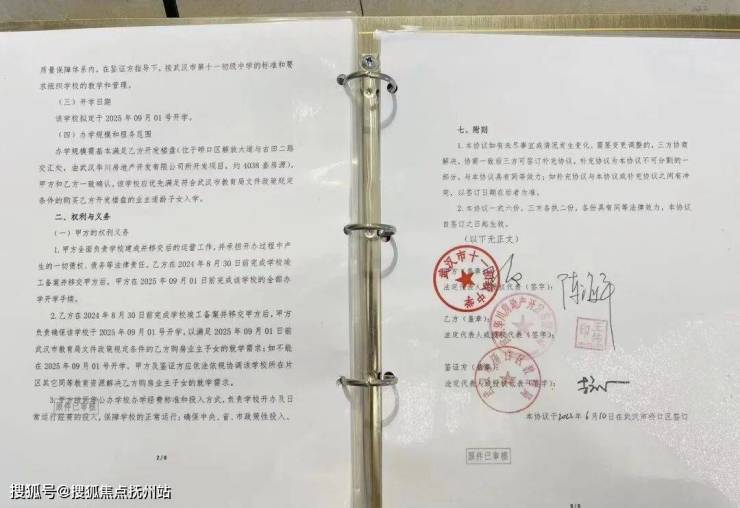 质量保障体系内，在签证方指导下，按武汉市第十一初级中学的标准和要
求组织学校的教学和管理。
（三）开学日期
该学校拟定于 2025 年 09 月 01 号开学。
（四）办学规模和服务范围
办学规模需基本满足乙方开发楼盘（位于硚口区解放大道与古田二路
交汇处，由武汉华川房地产开发有限公司所开发项目，约 4038 套房源）。
甲方和乙方一致确认，该学校应优先满足符合武汉市教育局文件政策规定
条件的购买乙方开发楼盘的业主适龄子女入学。
二、权利与义务
（一）甲方的权利义务
1.甲方全面负责学校建成并移交后的运营工作，并承担开办过程中产
生的一切债权、债务等法律责任。乙方在 2024 年 8 月 30 日前完成学校竣
工备案并移交甲方后，甲方在 2025 年 09 月 01 日前完成该学校的全部办
学开学手续。
2.乙方在 2024 年 8 月 30 日前完成学校竣工备案并移交甲方后，甲方
负责确保该学校于 2025 年 09 月 01 号开学，以满足 2025 年 09 月 01 日前
武汉市教育局文件政策规定条件的乙方购房业主子女的就学需求；如不能
在 2025 年 09 月 01 号开学，甲方及签证方应依法依规协调该学校所在片
区其它同等教育资源解决乙方购房业主子女的就学需求。
3.甲方按所属公办学校办学经费标准和投入方式，负责学校开办及日
常运行经费的投入，保障学校的正常运行；确保中央、省、市政策性投入、
原件已审核
2/8
七、附则
1.本协议如有未尽事宜或情况发生变化，需要变更调整的，三方协商
解决，协商一致后三方可签订补充协议，补充协议为本协议不可分割的一
部分，与本协议具有同等效力；如补充协议与本协议或补充协议之间有冲
突，以签订日期在后者为准。
2.本协议一式六份，三方各执二份，各份具有同等法律效力，本协议
自签订之日起生效。
（以下无正文）
甲方（盖章）：
法定代表人或授权代表（签字）：
乙方（盖章）：
法定代表人或授权代表（签字）：
签证方（盖章）：
法定代表人或授权代表（签字）：
本协议于 2023 年 6 月 10 日在武汉市硚口区签订
原件已审核
搜狐号@搜狐焦点抚州站